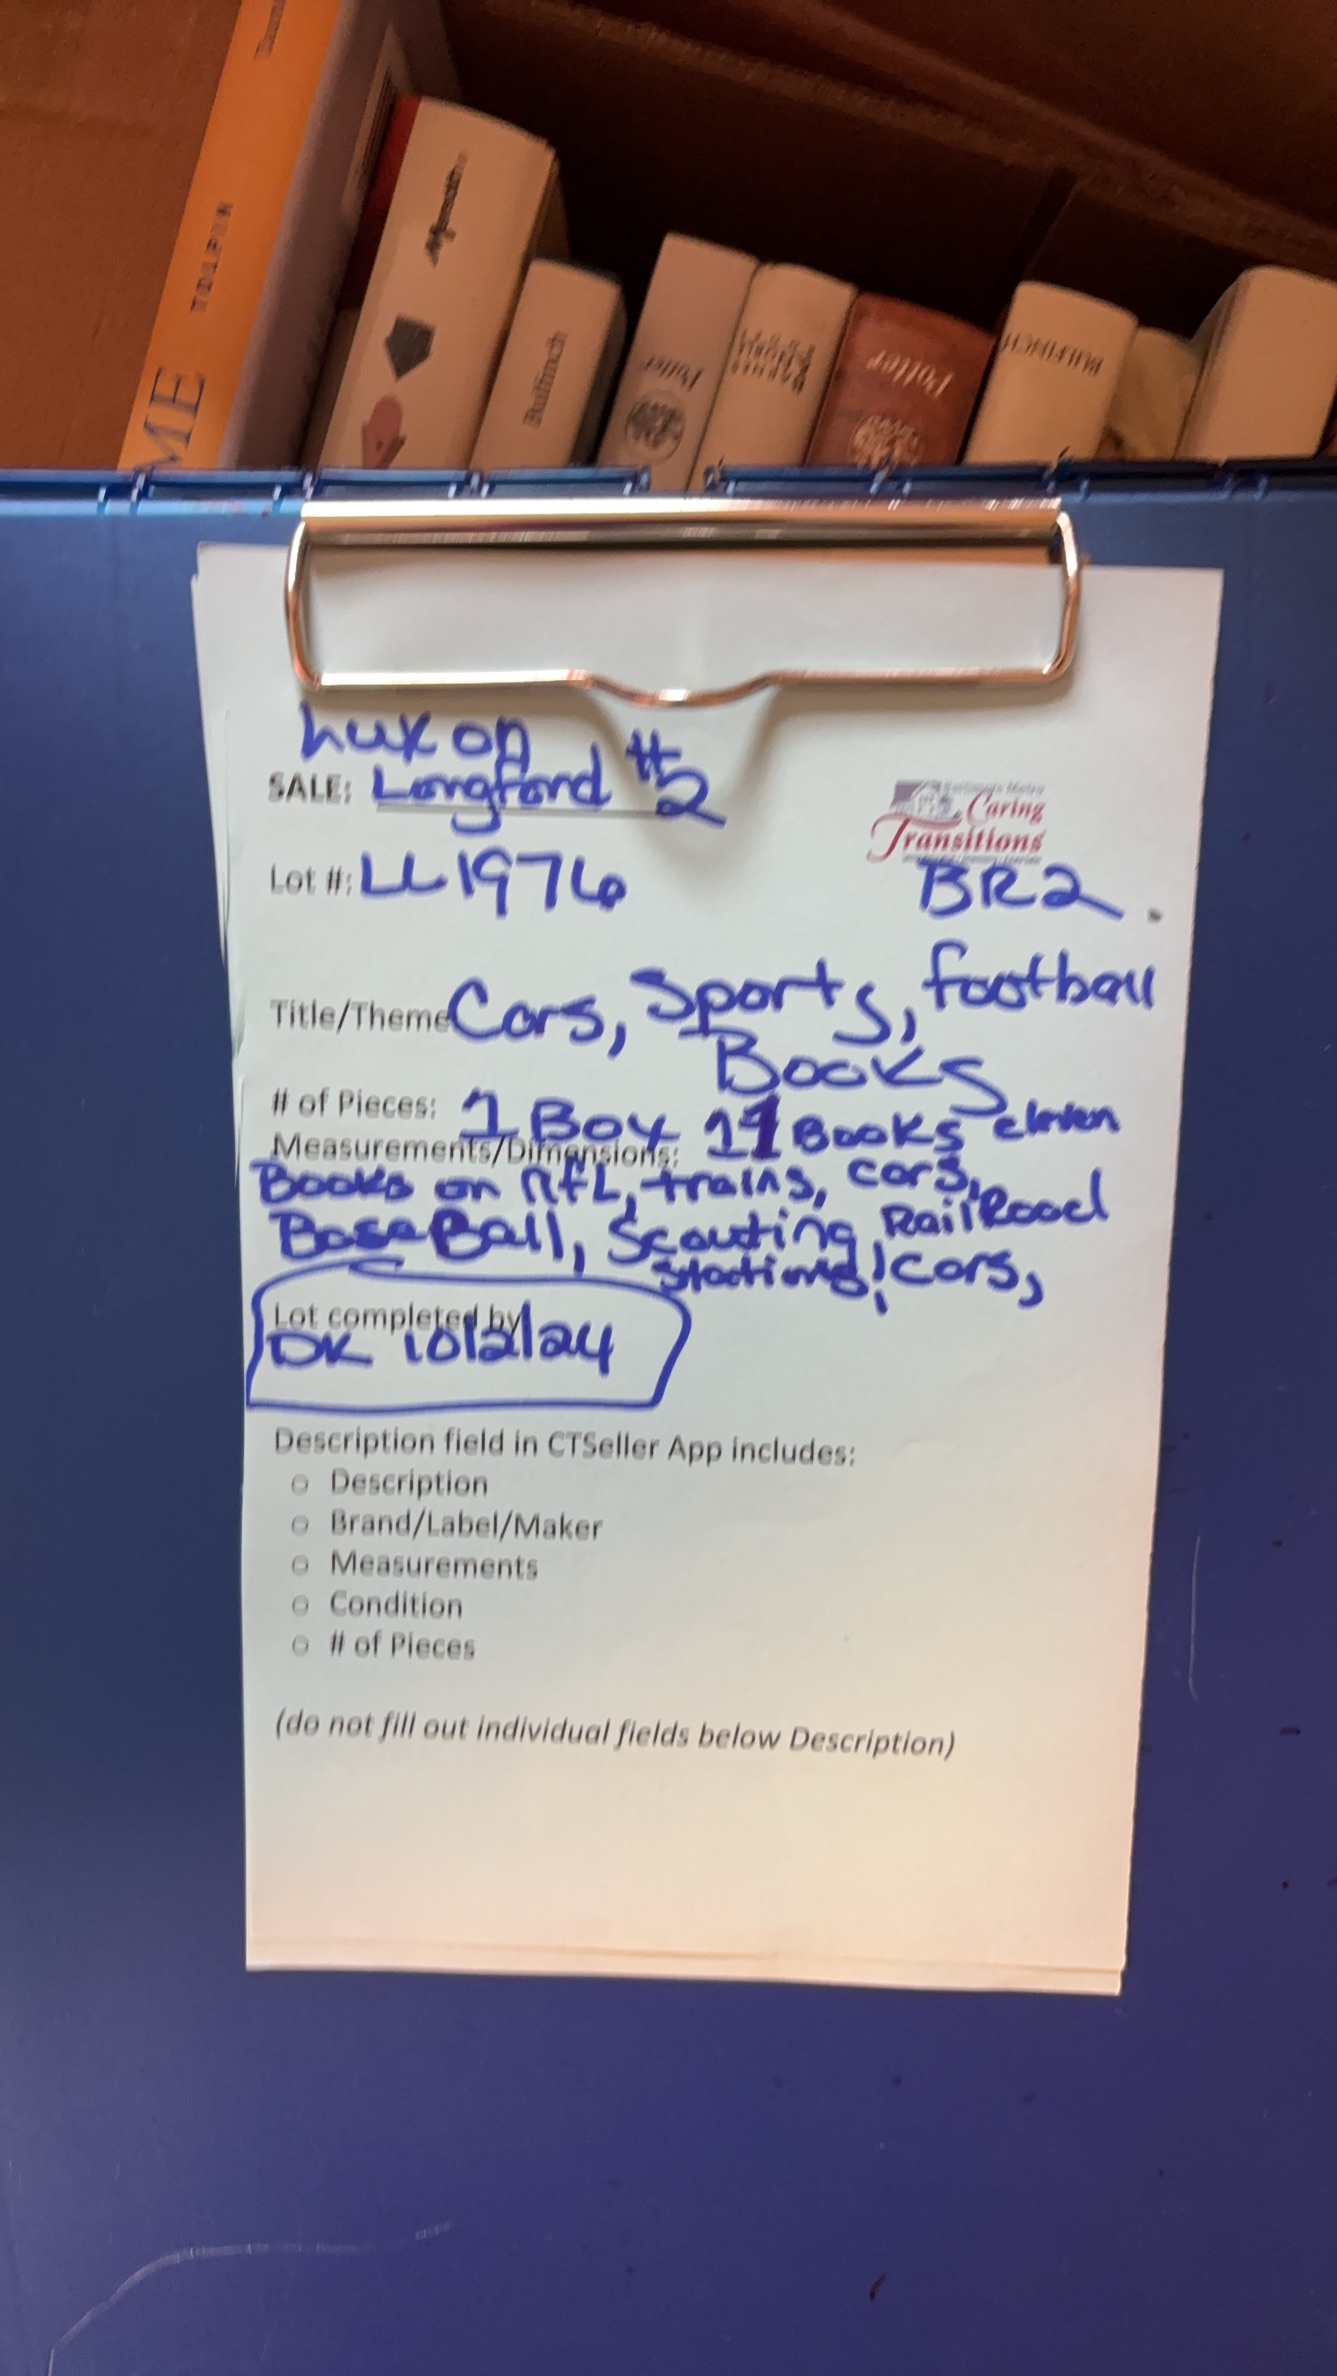 ME VOLPIN
Bulfinch
Potter
Potter
BULFINCH
Lux on
SALE: Longford #2
Caring
Transitions
Lot #: LL1976
BR2
Title/Theme Cars, Sports, football
Books
# of Pieces: 1 Box 11 Books eleven
Measurements/Dimensions:
Books on NFL, trains, cars,
BaseBall, Scouting, RailRoad
stations! cars,
Lot completed by
DK 10/2/24
Description field in CTSeller App includes:
o Description
o Brand/Label/Maker
o Measurements
o Condition
o # of Pieces
(do not fill out individual fields below Description)